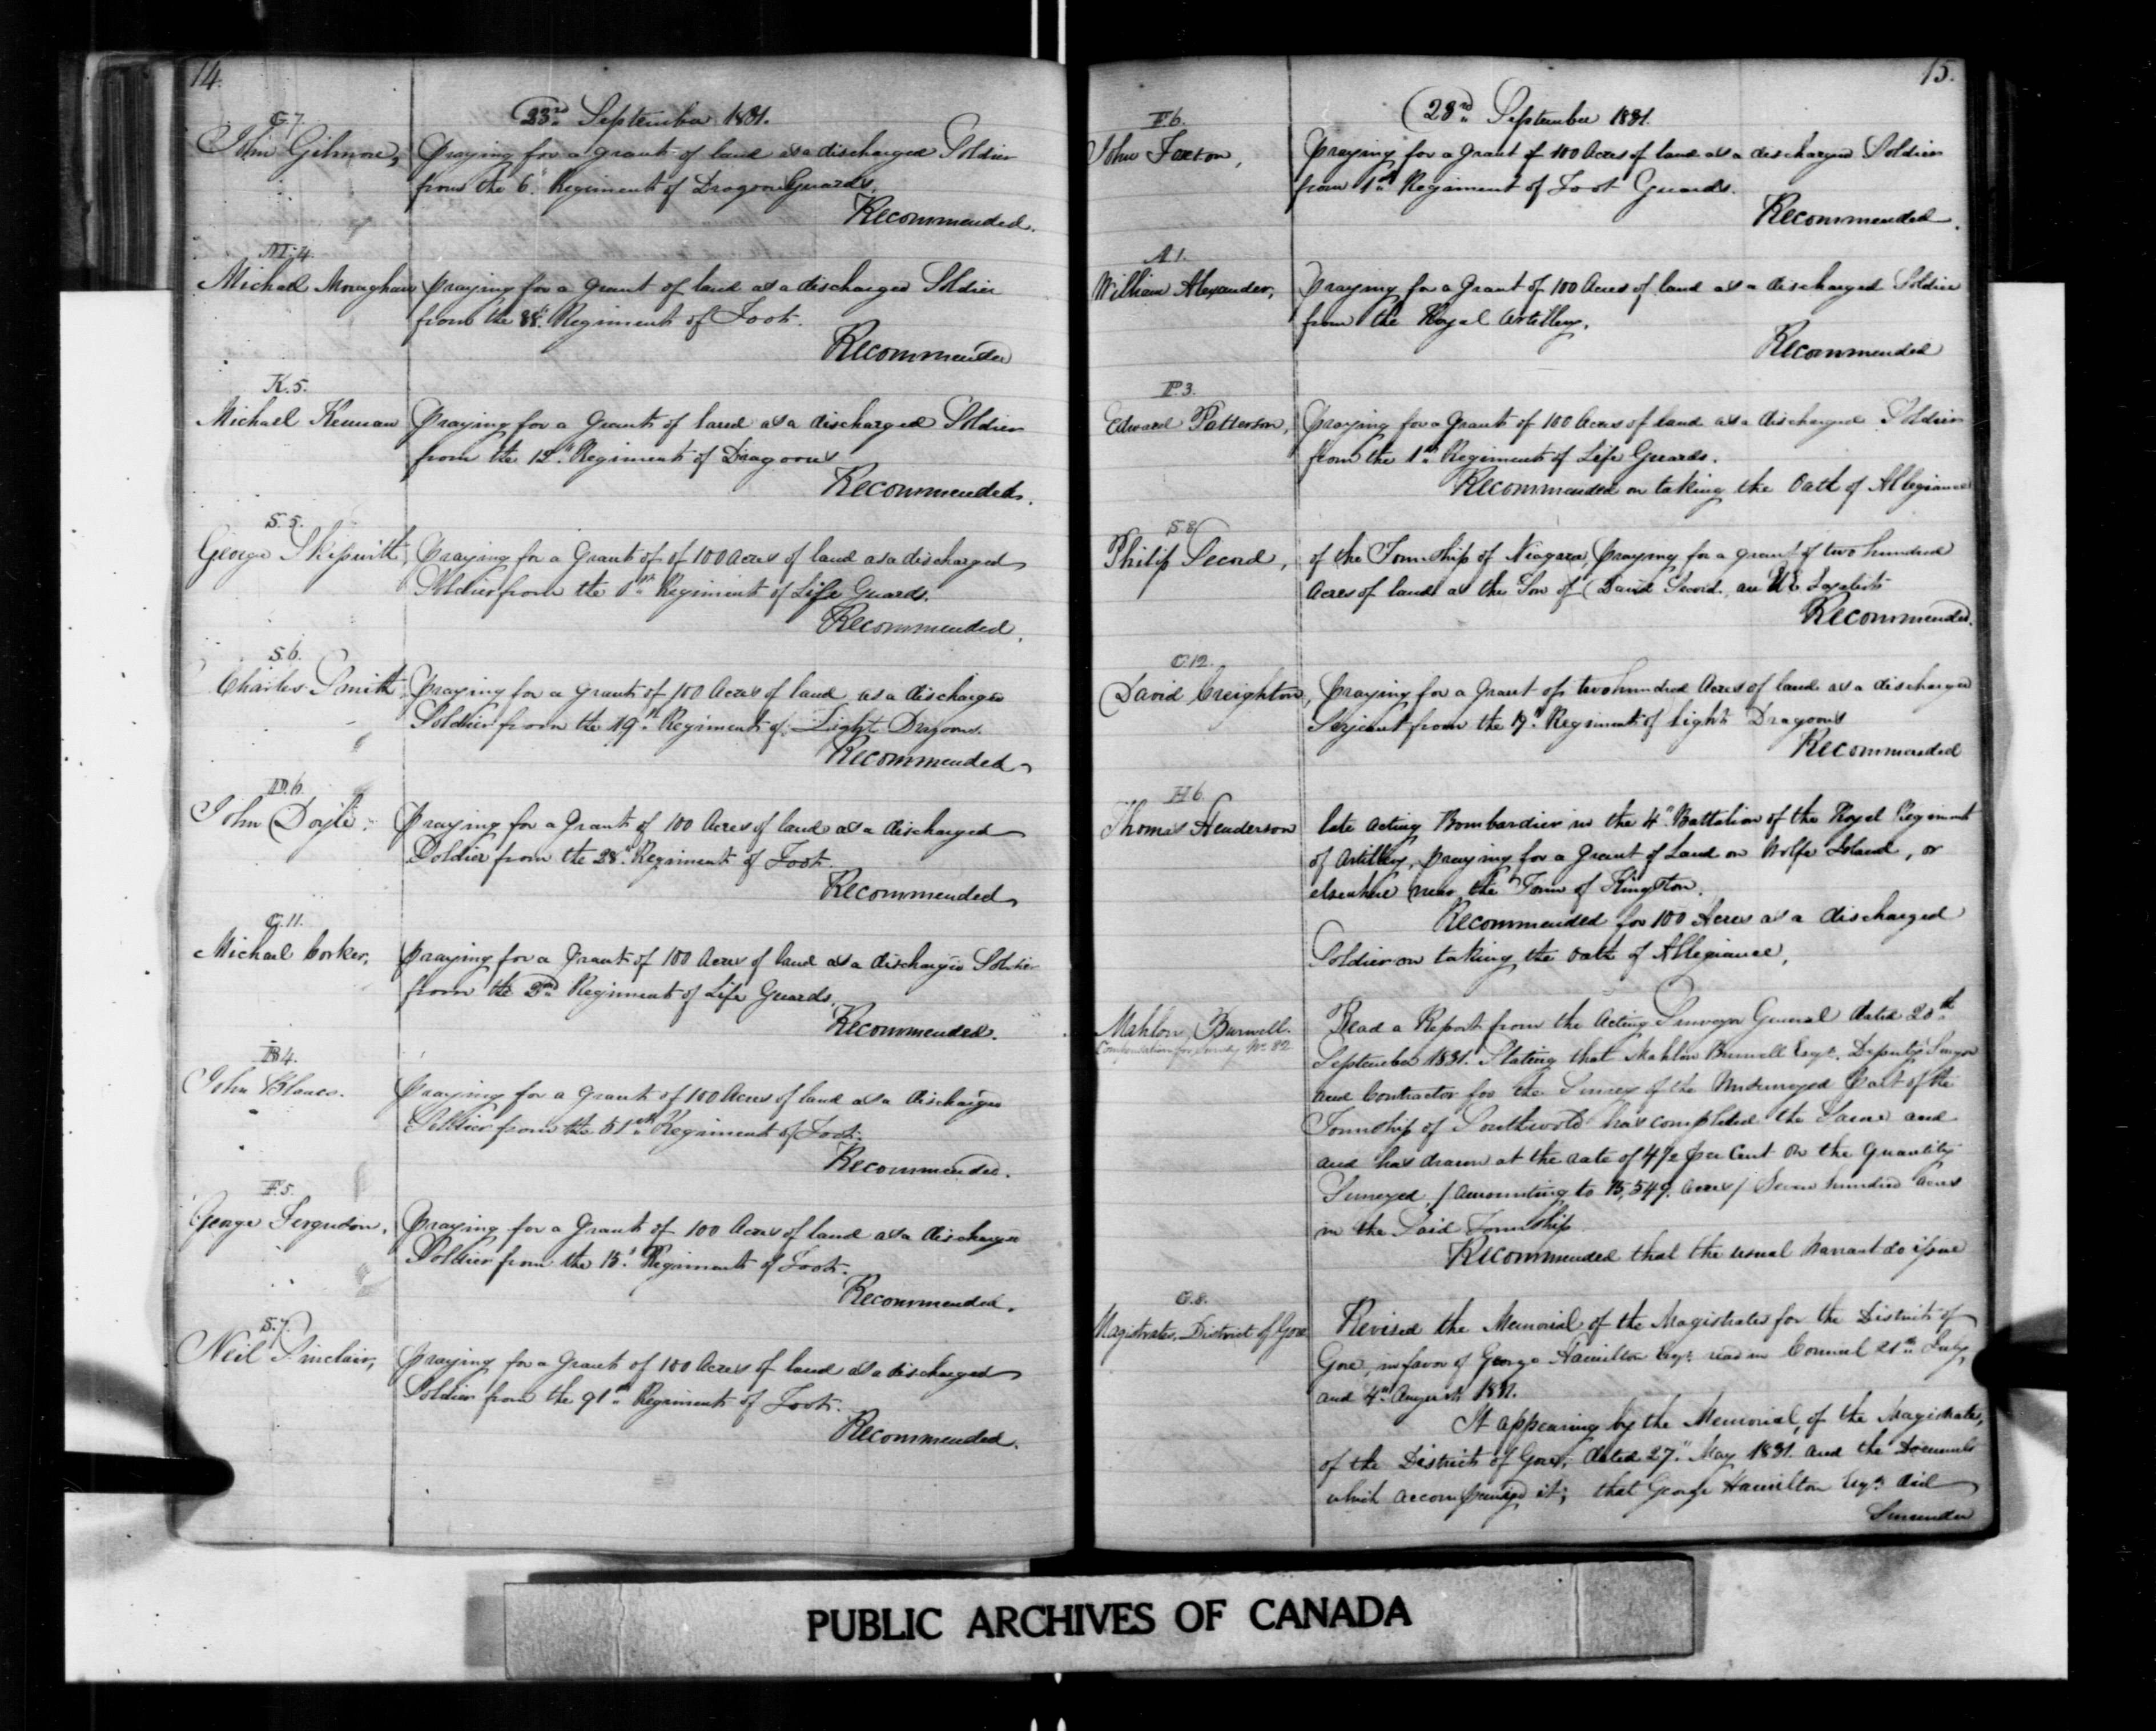 14.
23rd September 1831.
G.7.
John Gilmore, Praying for a grant of land as a discharged Soldier
from the 6" Regiment of Dragoon Guards.
Recommended.
M.4.
Michael Monaghan praying for a grant of land as a discharged Soldier
from the 88" Regiment of Foot.
Recommended
K.5.
Michael Keenan Praying for a Grant of land as a discharged Soldier
from the 12" Regiment of Dragoons
Recommended.
S.5.
George Skipwith, Praying for a Grant of of 100 Acres of land as a discharged
Soldier from the 1st Regiment of Life Guards.
Recommended.
S.6.
Charles Smith, Praying for a Grant of 100 Acres of land as a discharged
Soldier from the 19th Regiment of Light Dragoons.
Recommended
D.6.
John Doyle. Praying for a Grant of 100 Acres of land as a discharged
Soldier from the 28" Regiment of Foot.
Recommended
C.11.
Michael Corker, praying for a Grant of 100 Acres of land as a discharged Soldier
from the 2nd Regiment of Life Guards.
Recommended.
B.4.
John Praying for a Grant of 100 Acres of land as a discharged
Soldier from the 51st Regiment of Foot.
Recommended.
F.5.
George Ferguson, Praying for a Grant of 100 Acres of land as a discharged
Soldier from the 15" Regiment of Foot.
Recommended.
S.7.
Neil Sinclair, praying for a Grant of 100 Acres of land as a discharged
Soldier from the 91st Regiment of Foot.
Recommended.
15.
23rd September 1831.
F.6.
John Foxton, Praying for a Grant of 100 Acres of land as a discharged Soldier
from 1st Regiment of Foot Guards.
Recommended.
A.1.
William Alexander, Praying for a Grant of 100 Acres of land as a discharged Soldier
from the Royal Artillery.
Recommended
P.3.
Edward Patterson, Praying for a Grant of 100 Acres of land as a discharged Soldier
from the 1st Regiment of Life Guards.
Recommended on taking the Oath of Allegiance
S.8.
Philip Secord, of the Township of Niagara, Praying for a grant of two hundred
Acres of land as the Son of David Secord, an U.E. Loyalist
Recommended.
C.12.
David Creighton, Praying for a Grant of two hundred Acres of land as a discharged
Serjeant from the 19" Regiment of light Dragoons
Recommended
H.6.
Thomas Henderson late acting Bombardier in the 4" Battalion of the Royal Regiment
of Artillery, praying for a Grant of Land on Wolfe Island, or
elsewhere near the Town of Kingston.
Recommended for 100 Acres as a discharged
Soldier on taking the oath of Allegiance.
Mahlon Burwell. Read a Report from the Acting Surveyor General dated 20th
Compensation for Survey No. 82 September 1831. Stating that Mahlon Burwell Esqr. Deputy Surveyor
and Contractor for the Survey of the Unsurveyed Part of the
Township of Southwold has completed the Same and
and has drawn at the rate of 4½ per Cent on the quantity
Surveyed, / amounting to 15,549 acres / Seven hundred acres
in the Said Township
Recommended that the usual Warrant do issue
G.8.
Magistrates, District of Gore Revised the Memorial of the Magistrates for the District of
Gore, in favor of George Hamilton Esqr. read in Council 21st July,
and 4th August 1831.
It appearing by the Memorial, of the Magistrates,
of the District of Gore, dated 27" May 1831. and the Documents
which accompanied it; that George Hamilton Esqr. did
Surrender
PUBLIC ARCHIVES OF CANADA